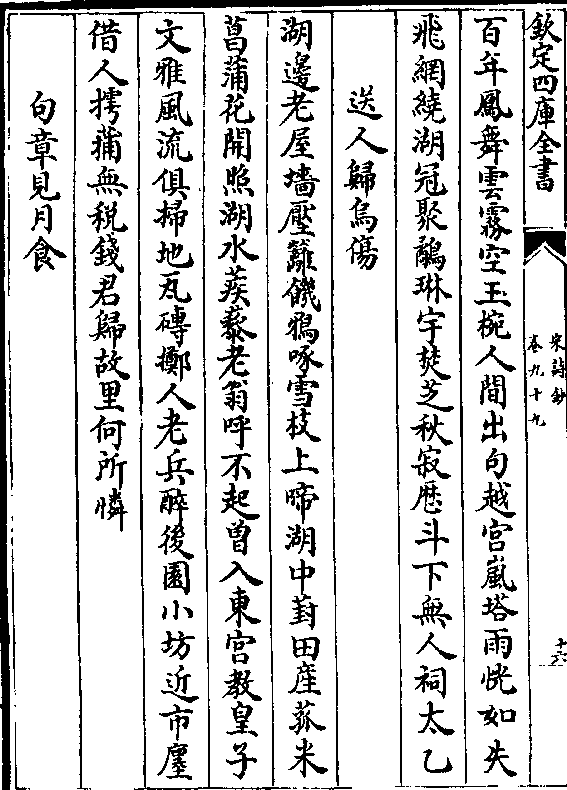 欽定四庫全書
宋詩鈔
卷九十九
十六
百年鳳舞雲霧空玉椀人間出句越宮嵐塔雨恍如失
飛網繞湖冠聚鷸琳宇焚芝秋寂歴斗下無人祠太乙
送人歸烏傷
湖邊老屋墻壓籬饑鴉啄雪枝上啼湖中葑田産菰米
菖蒲花開照湖水蒺藜老翁呼不起曾入東宮教皇子
文雅風流俱掃地瓦磚擲人老兵醉後園小坊近市廛
借人摴蒱無税錢君歸故里何所憐
句章見月食